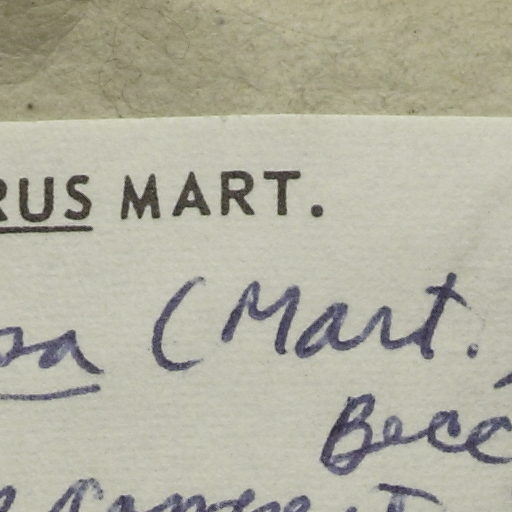 RUS MART.
sa (Mart.
Becc